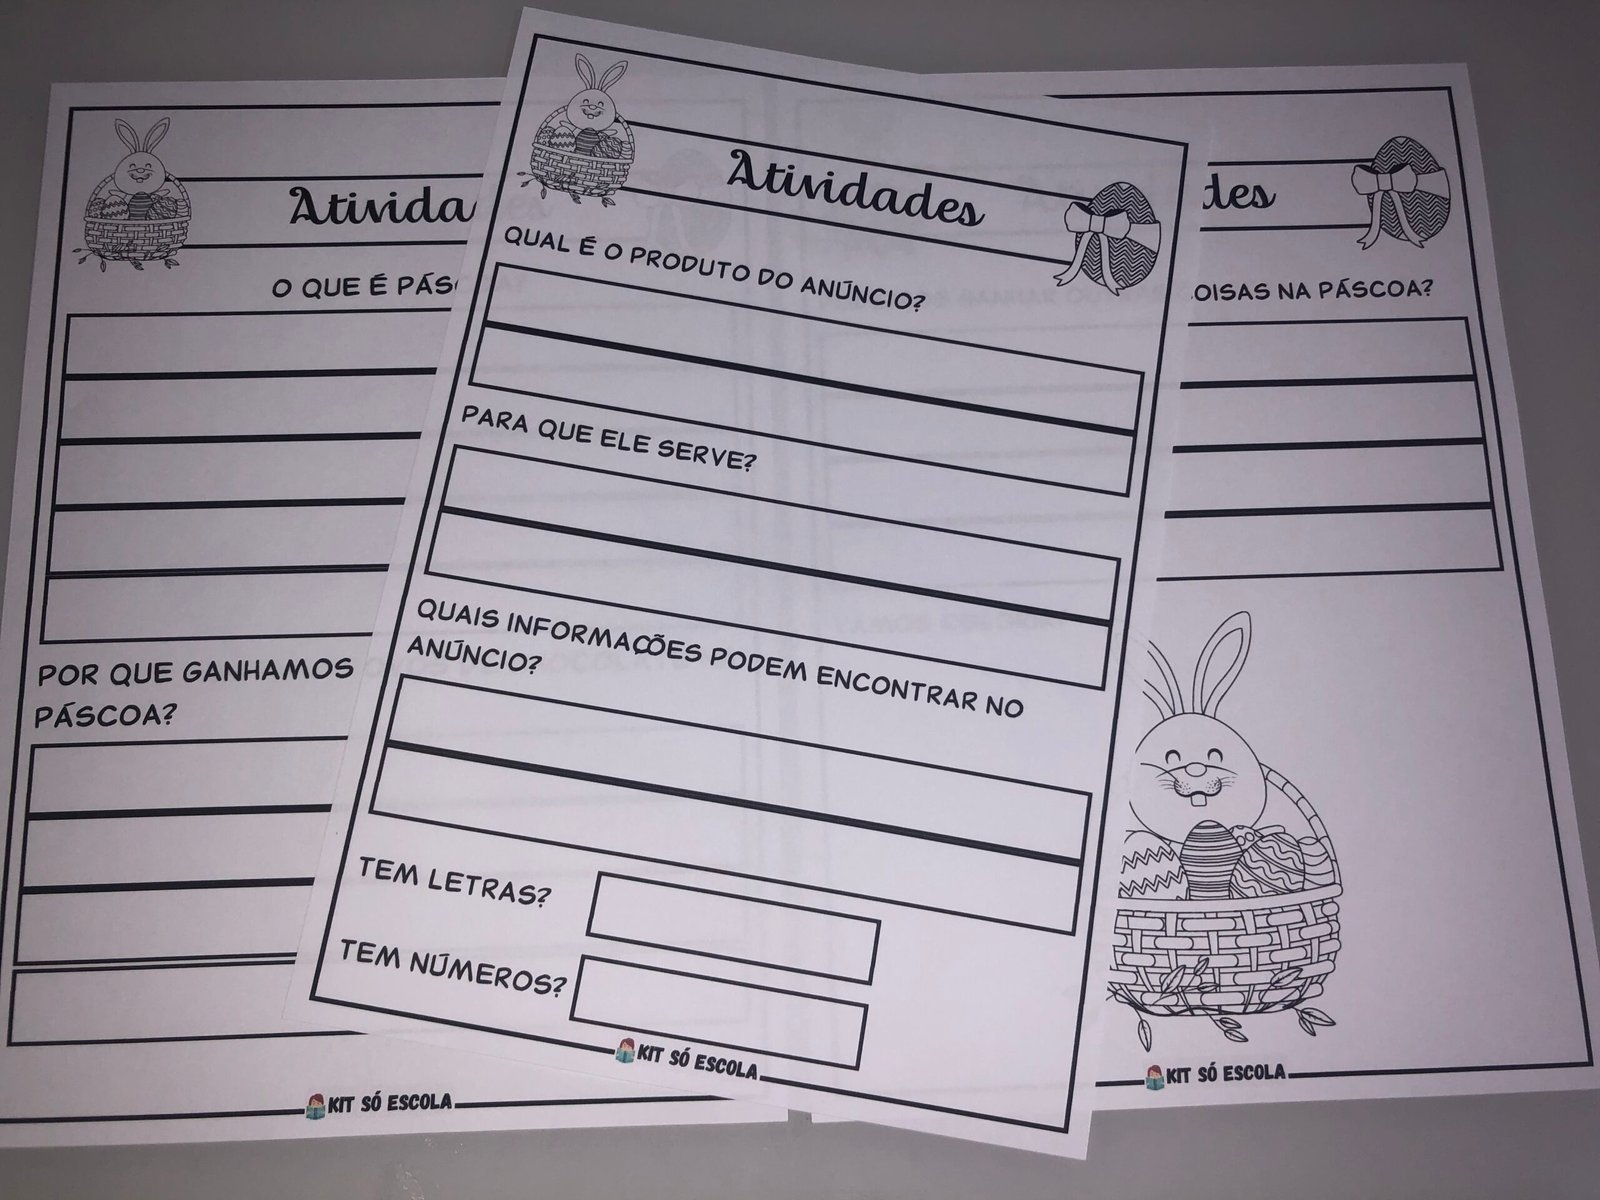 Ativida
O QUE É PÁSC
POR QUE GANHAMOS
PÁSCOA?
KIT SÓ ESCOLA
Atividades
QUAL É O PRODUTO DO ANÚNCIO?
PARA QUE ELE SERVE?
QUAIS INFORMAÇÕES PODEM ENCONTRAR NO
ANÚNCIO?
TEM LETRAS?
TEM NÚMEROS?
KIT SÓ ESCOLA
des
OISAS NA PÁSCOA?
KIT SÓ ESCOLA